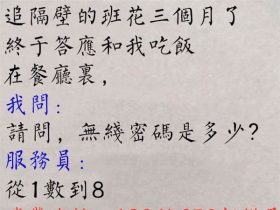 追隔壁的班花三個月了
終于答應和我吃飯
在餐廳裏,
我問:
請問，無綫密碼是多少?
服務員:
從1數到8